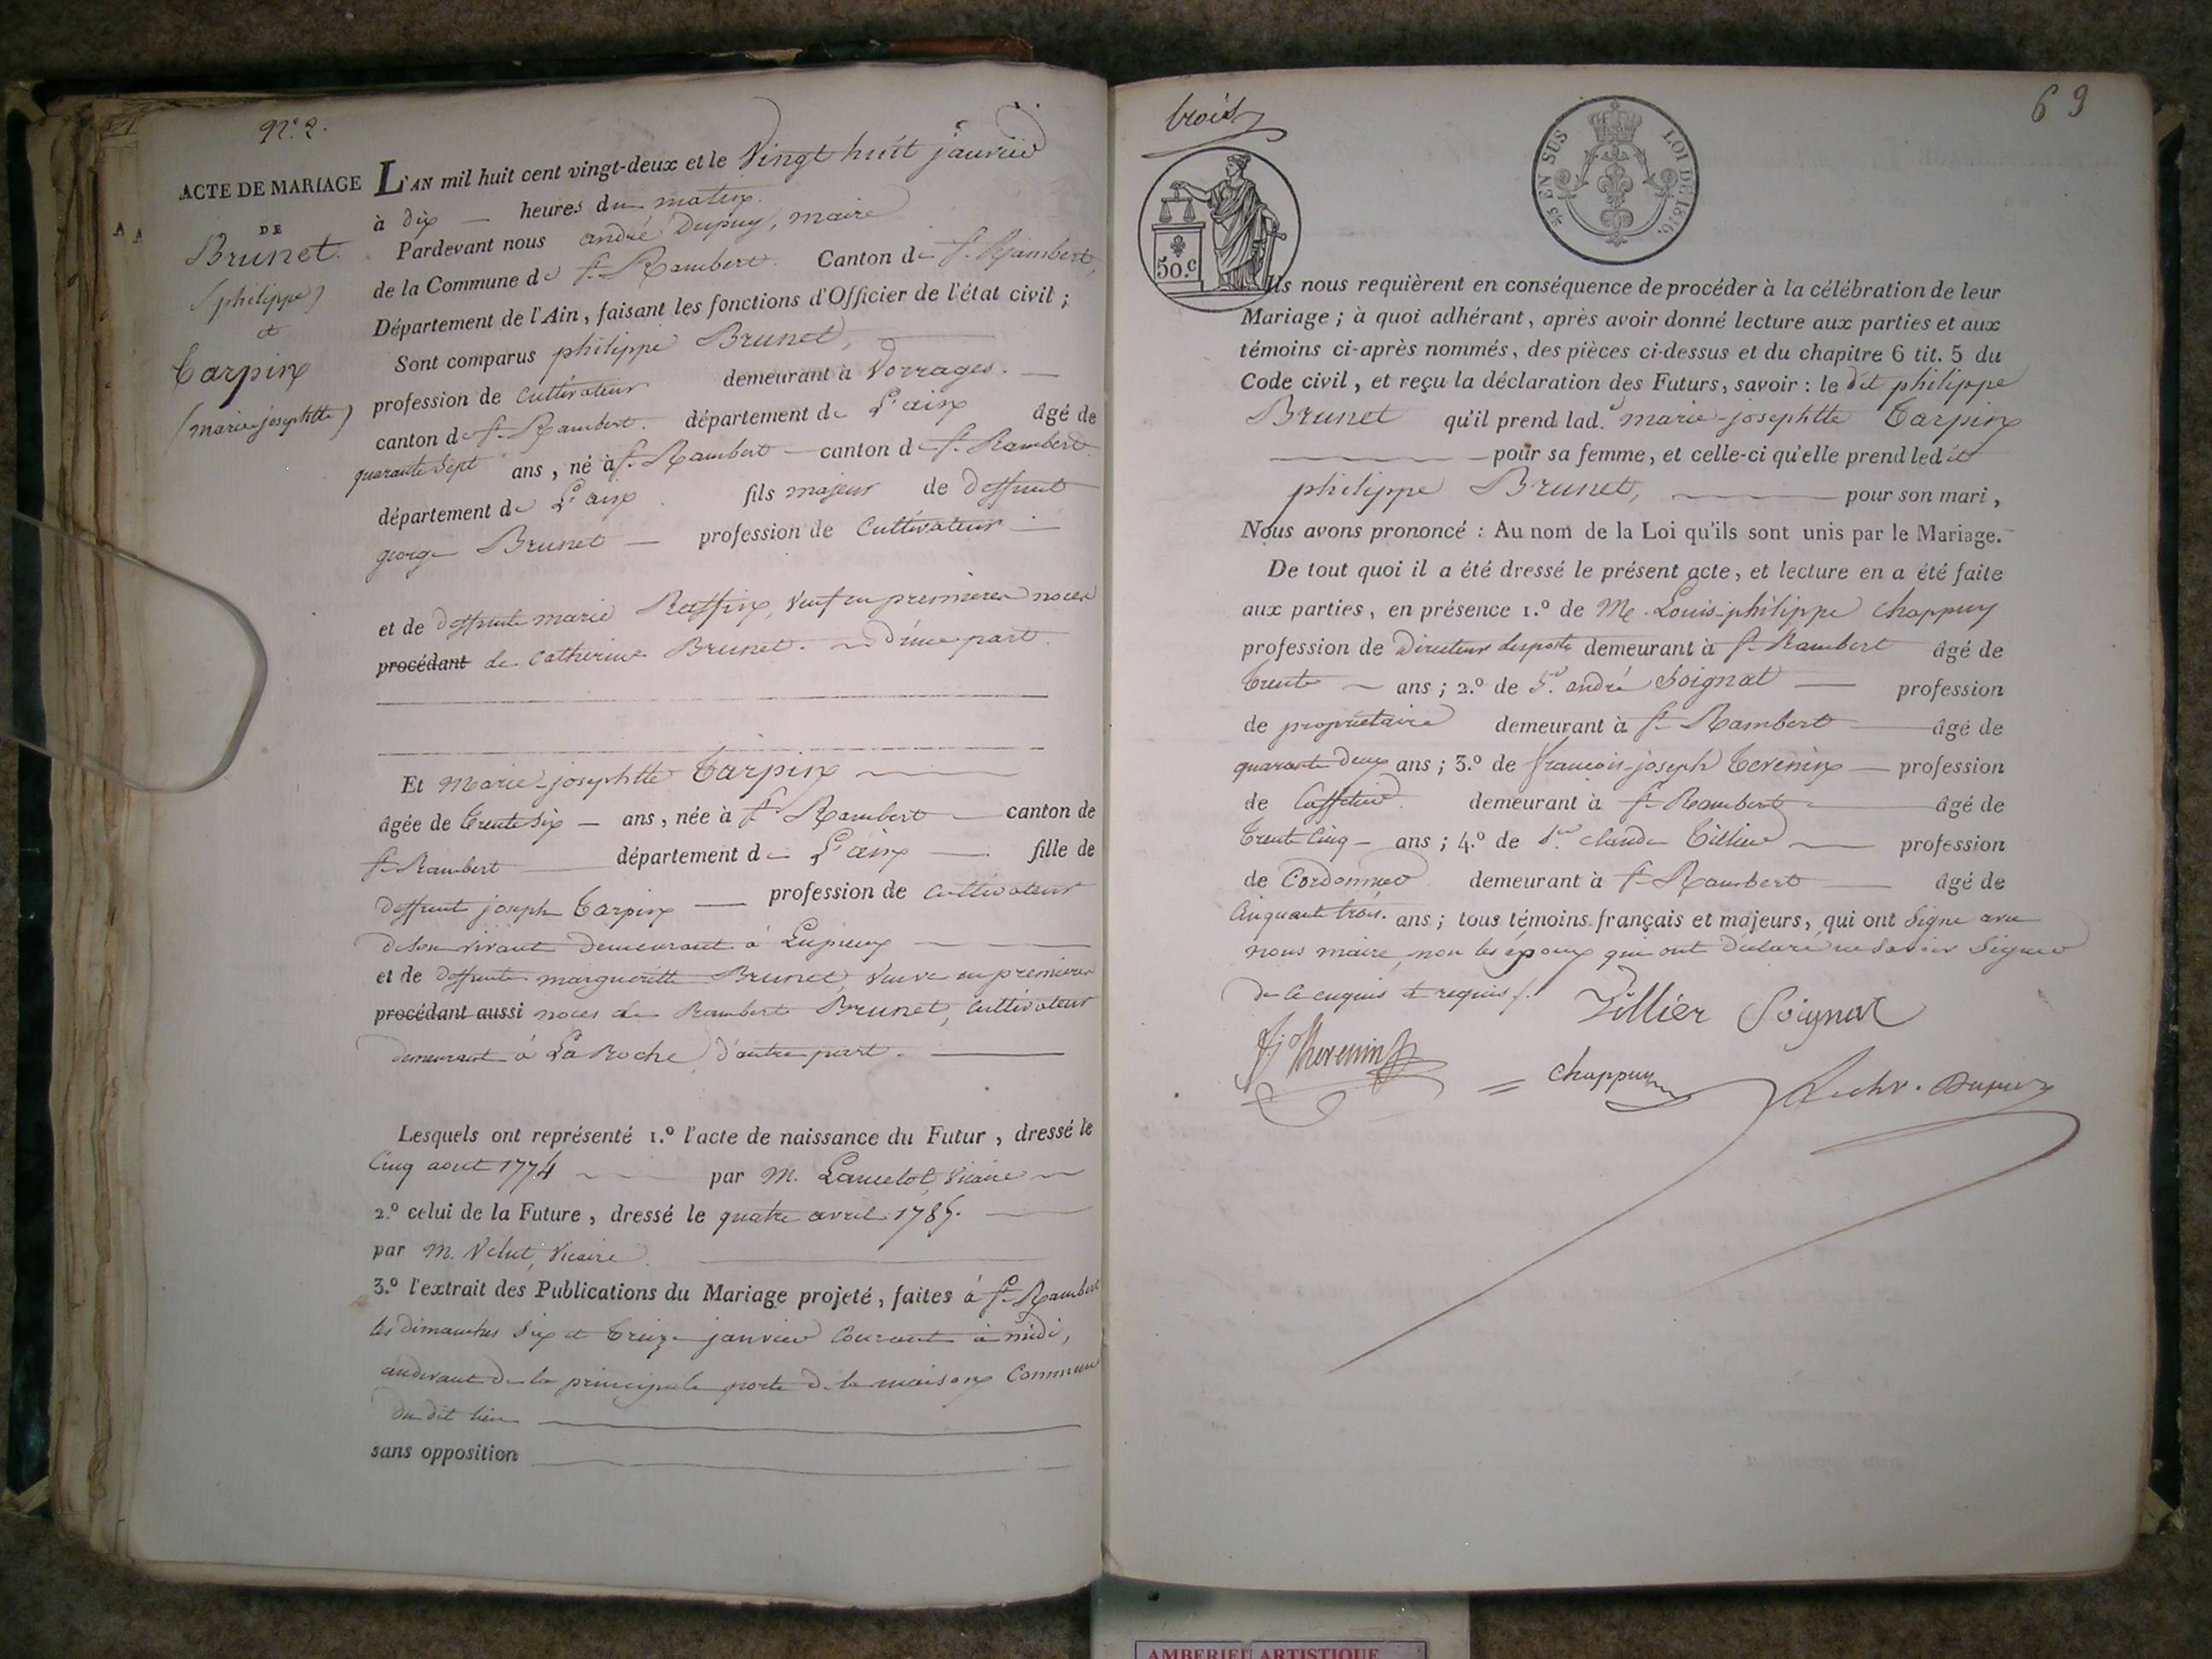 N.º 2.
ACTE DE MARIAGE
DE
Brunet
(philippe)
et
Tarpin
(marie-josephtte)
L'AN mil huit cent vingt-deux et le Vingt huit janvier
à dix — heures du matin.
Pardevant nous andré Dupuy, maire
de la Commune de St. Rambert. Canton de St. Rambert,
Département de l'Ain, faisant les fonctions d'Officier de l'état civil ;
Sont comparus philippe Brunet,
profession de Cultivateur demeurant à Vorrages. —
canton de St. Rambert. département de L'ain âgé de
quarante Sept ans, né à St. Rambert — canton de St. Rambert.
département de L'ain fils majeur de deffunt
george Brunet — profession de Cultivateur —
et de deffunte marie Raffin, Veuf en premieres noces
procédant de Catherine Brunet. — d'une part.
Et Marie-josephtte Tarpin
âgée de trente Six — ans, née à St. Rambert — canton de
St. Rambert — département de L'ain — fille de
deffunt joseph Tarpin — profession de Cultivateur
de Son vivant demeurant à
et de deffunte margueritte Brunet, Veuve en premieres
procédant aussi noces de Rambert Brunet, Cultivateur
demeurant à La Roche, d'autre part. —
Lesquels ont représenté 1.º l'acte de naissance du Futur, dressé le
Cinq aout 1774 par M. Lancelot, Vicaire
2.º celui de la Future, dressé le quatre avril 1785. —
par M. Velut, Vicaire.
3.º l'extrait des Publications du Mariage projeté, faites à St. Rambert
les dimanches Six et treize janvier Courant à midi,
audevant de la principale porte de la maison Commune
du dit lieu
sans opposition
trois
69
50.c
5/25 EN SUS LOI DE 1816.
Ils nous requièrent en conséquence de procéder à la célébration de leur
Mariage ; à quoi adhérant, après avoir donné lecture aux parties et aux
témoins ci-après nommés, des pièces ci-dessus et du chapitre 6 tit. 5 du
Code civil, et reçu la déclaration des Futurs, savoir : le dit philippe
Brunet qu'il prend lad.e marie-josephtte Tarpin
— pour sa femme, et celle-ci qu'elle prend ledit
philippe Brunet, — pour son mari,
Nous avons prononcé : Au nom de la Loi qu'ils sont unis par le Mariage.
De tout quoi il a été dressé le présent acte, et lecture en a été faite
aux parties, en présence 1.º de Me. Louis-philippe Chappuy
profession de Directeur des poste demeurant à St. Rambert âgé de
trente — ans ; 2.º de Sr. andré Soignat — profession
de proprietaire demeurant à St. Rambert — âgé de
quarante deux ans ; 3.º de francois-joseph Tevenin — profession
de Caffetier. demeurant à St. Rambert — âgé de
trente Cinq — ans ; 4.º de Sr. claude Tillier — profession
de Cordonnier demeurant à St. Rambert — âgé de
Cinquante trois. ans ; tous témoins français et majeurs, qui ont Signé avec
nous maire, non les époux qui ont déclaré ne Savoir Signer
de ce enquis et requis /.
Tillier Soignat
f. j. Thevenin
= chappuy
Dupuy
AMBERIEU ARTISTIQUE